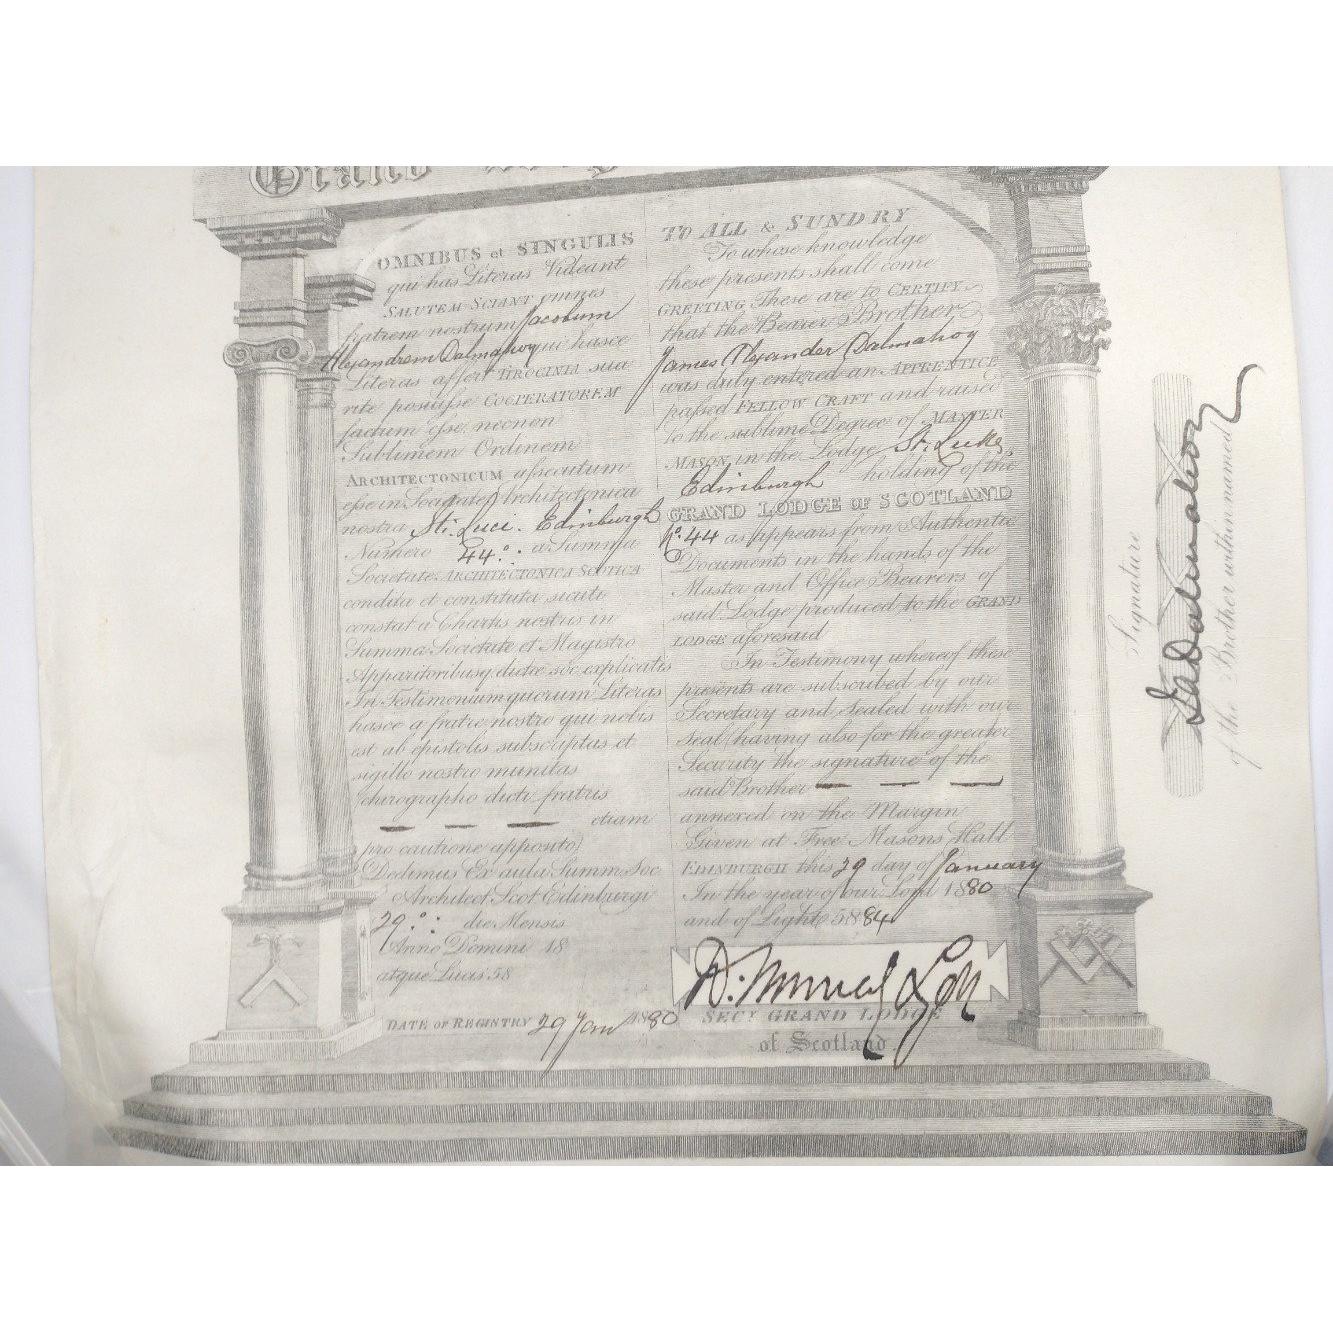 Grand
OMNIBUS et SINGULIS
qui has Literas Videant
SALUTEM SCIANT omnes
fratrem nostrum Jacobum
Alexandrem Dalmahoy qui hasce
Literas affert TIROCINIA sua
rite posuisse COOPERATOREM
factum esse, necnon
Sublimem Ordinem
ARCHITECTONICUM assecutum
esse in Societate Architectonica
nostra Sti. Luci. Edinburgh
Numero 44º. a Summa
Societate ARCHITECTONICA SCOTICA
condita et constituta sicuti
constat a Chartis nostris in
Summa Societate et Magistro
Apparitoribusq. dictæ soc explicatis
In Testimonium quorum Literas
hasce a fratre nostro qui nobis
est ab epistolis subscriptas et
sigillo nostro munitas
chirographo dicti fratris
— — — etiam
(pro cautione apposito)
Dedimus Ex aula Summ Soc
Architect Scot Edinburgi
29º. die Mensis
Anno Domini 18
atque Lucis 58
DATE OF REGISTRY 29 Jany 1880
TO ALL & SUNDRY
To whose knowledge
these presents shall come
GREETING These are to CERTIFY
that the Bearer Brother
James Alexander Dalmahoy
was duly entered an APPRENTICE
passed FELLOW CRAFT and raised
to the sublime Degree of MASTER
MASON, in the Lodge St. Luke
Edinburgh holding of the
GRAND LODGE OF SCOTLAND
No. 44 as appears from Authentic
Documents in the hands of the
Master and Office Bearers of
said Lodge produced to the GRAND
LODGE aforesaid
In Testimony whereof these
presents are subscribed by our
Secretary and Sealed with our
Seal (having also for the greater
Security the signature of the
said Brother — — —
annexed on the Margin
Given at Free Masons Hall
EDINBURGH this 29 day of January
In the year of our Lord 1880
and of Light 5884
D. Murray Lyon
SECY GRAND LODGE
of Scotland.
Signature
J A Dalmahoy
of the Brother within named